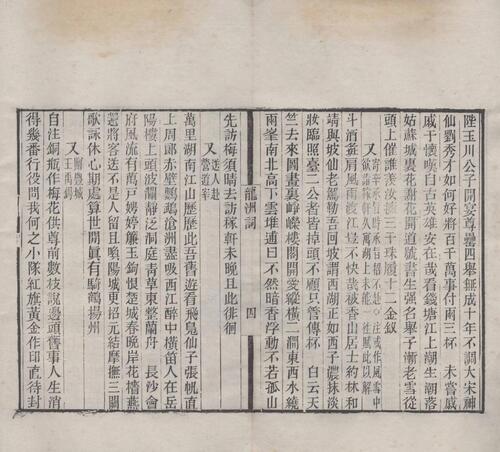 陞玉川公子開宴尊罍四舉無成十年不調大宋神
仙劉秀才如何好將百千萬事付兩三杯　未嘗戚
戚于懷嘆曰古英雄安在哉看錢塘江上潮生潮落
姑蘇城裏花謝花開道號書生强名舉子漸老雪從
頭上催誰羨汝擁三千珠履十二金釵
又
寄辛承旨時承旨招不赴　或作風雪中
欲詣稼軒久寓湖上未能往賦此以解
斗酒彘肩風雨渡江豈不快哉被香山居士約林和
靖與坡仙老駕勒吾回坡謂西湖正如西子濃抹淡
妝臨照臺二公者皆掉頭不顧只管傳杯　白云天
竺去來圖畫裏崢嶸樓閣開愛縱橫二澗東西水繞
兩峯南北高下雲堆逋曰不然暗香浮動不若孤山
龍洲詞　四
先訪梅須晴去訪稼軒未晚且此徘徊
又
送人赴
營道宰
萬里湖南江山歷歷此吾舊遊看飛鳧仙子張帆直
上周郎赤壁鸚鵡滄洲盡吸西江醉中橫笛人在岳
陽樓上頭波瀾靜泛洞庭青草東整蘭舟　長沙會
府風流有萬戶娉婷簾玉鉤恨楚城春晚岸花檣燕
還將客送不是人留且喚陽城更招元結摩撫三關
歌詠休心期處算世間眞有騎鶴揚州
又
豐城
王禹錫
自注銅瓶作梅花供尊前數枝說邊頭舊事人生消
得幾番行役問我何之小隊紅旗黃金作印直待封